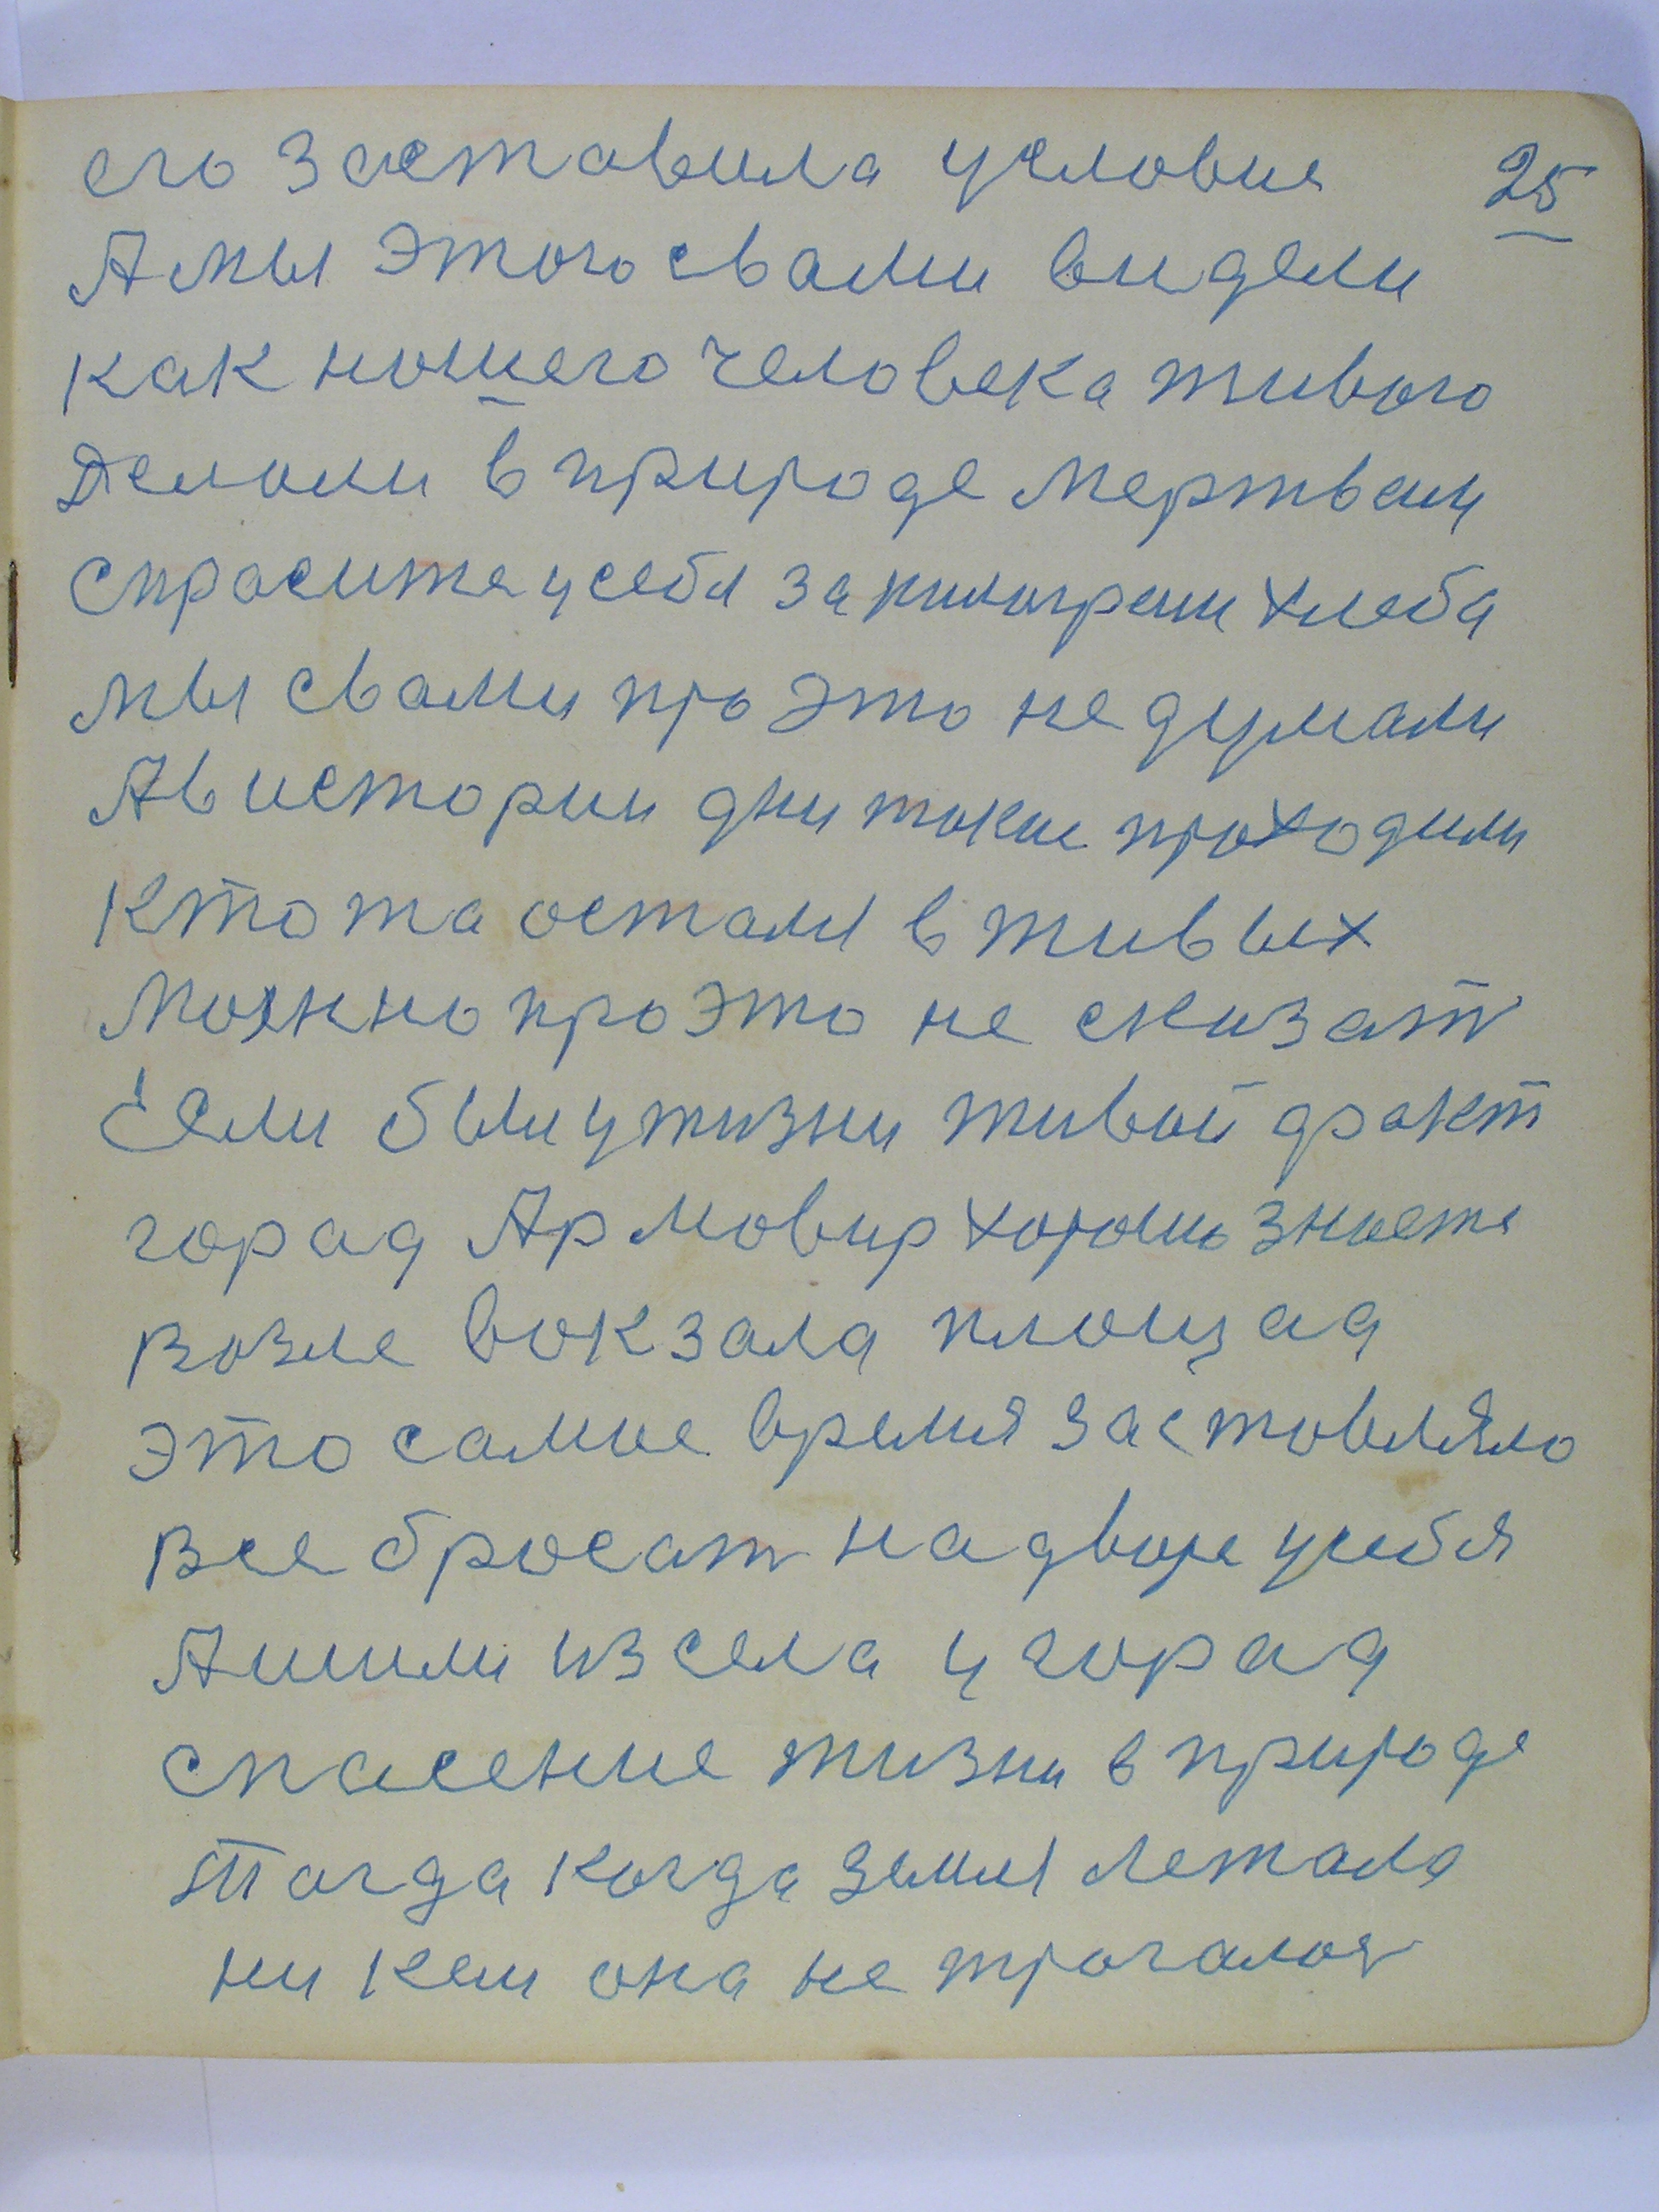 его заставила условия 25
А мы этого свами видели
как ношего человека живого
Делоли в природе мертвам
спросите усебя за килограм хлеба
мы свами про это не думали
Ав истории дни такие проходили
Кто то осталя в живых
Можнно про это не сказат
Если был ужизни живой факт
горад Армовир хорошо знаете
возле вокзала площад
это самое время застовляло
все бросат на дворе усебя
Ашили из села у горад
спасение жизни в природе
Тагда когда земля лежала
ни кем она не трогалоя